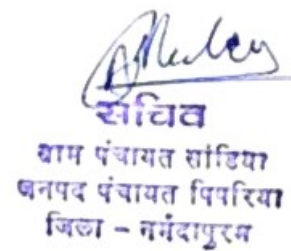 सचिव
ग्राम पंचायत सांडिया
जनपद पंचायत पिपरिया
जिला - नर्मदापुरम